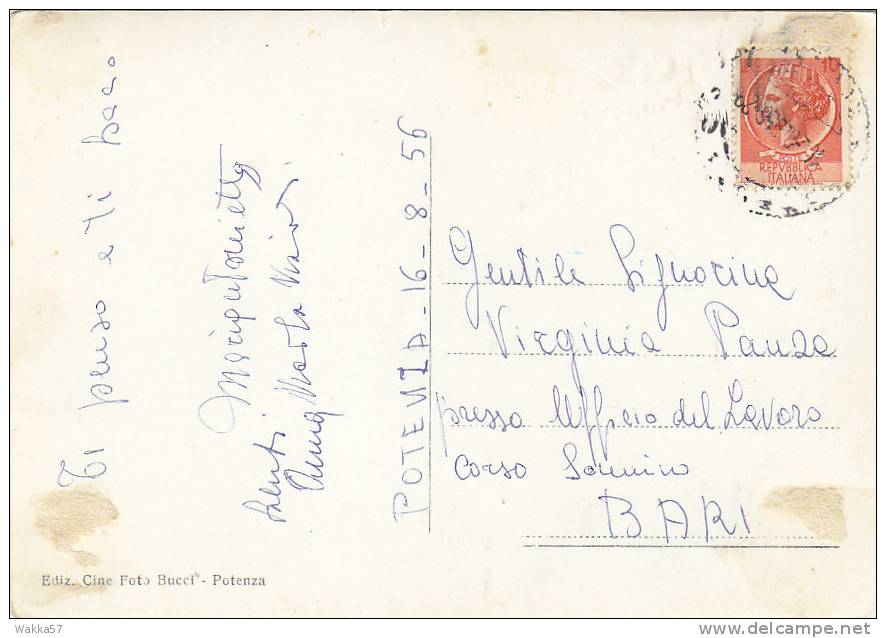 Ti penso e ti bacio
Mariantonietta
Saluti
Anna Maria
POTENZA - 16-8-56
POSTE
REPVBBLICA
ITALIANA
Gentile Signorina
Virginia Panza
presso Ufficio del Lavoro
Corso Sonnino
BARI
Ediz. Cine Foto Bucci - Potenza
Wakka57
delcampe.net